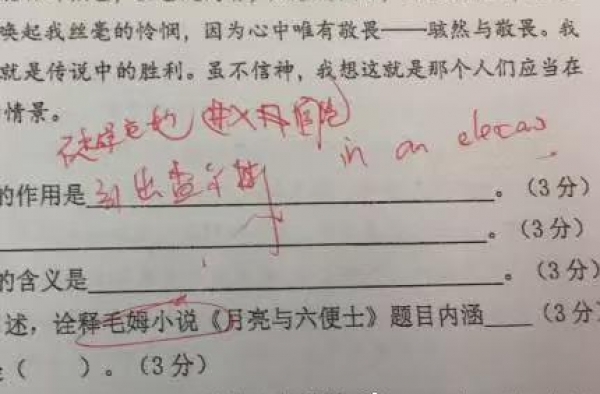 唤起我丝毫的怜悯，因为心中唯有敬畏——骇然与敬畏。我
就是传说中的胜利。虽不信神，我想这就是那个人们应当在
情景。
in an
的作用是 引出 。（3分）
。（3分）
的含义是 。（3分）
述，诠释毛姆小说《月亮与六便士》题目内涵 （3分）
（ ）。（3分）